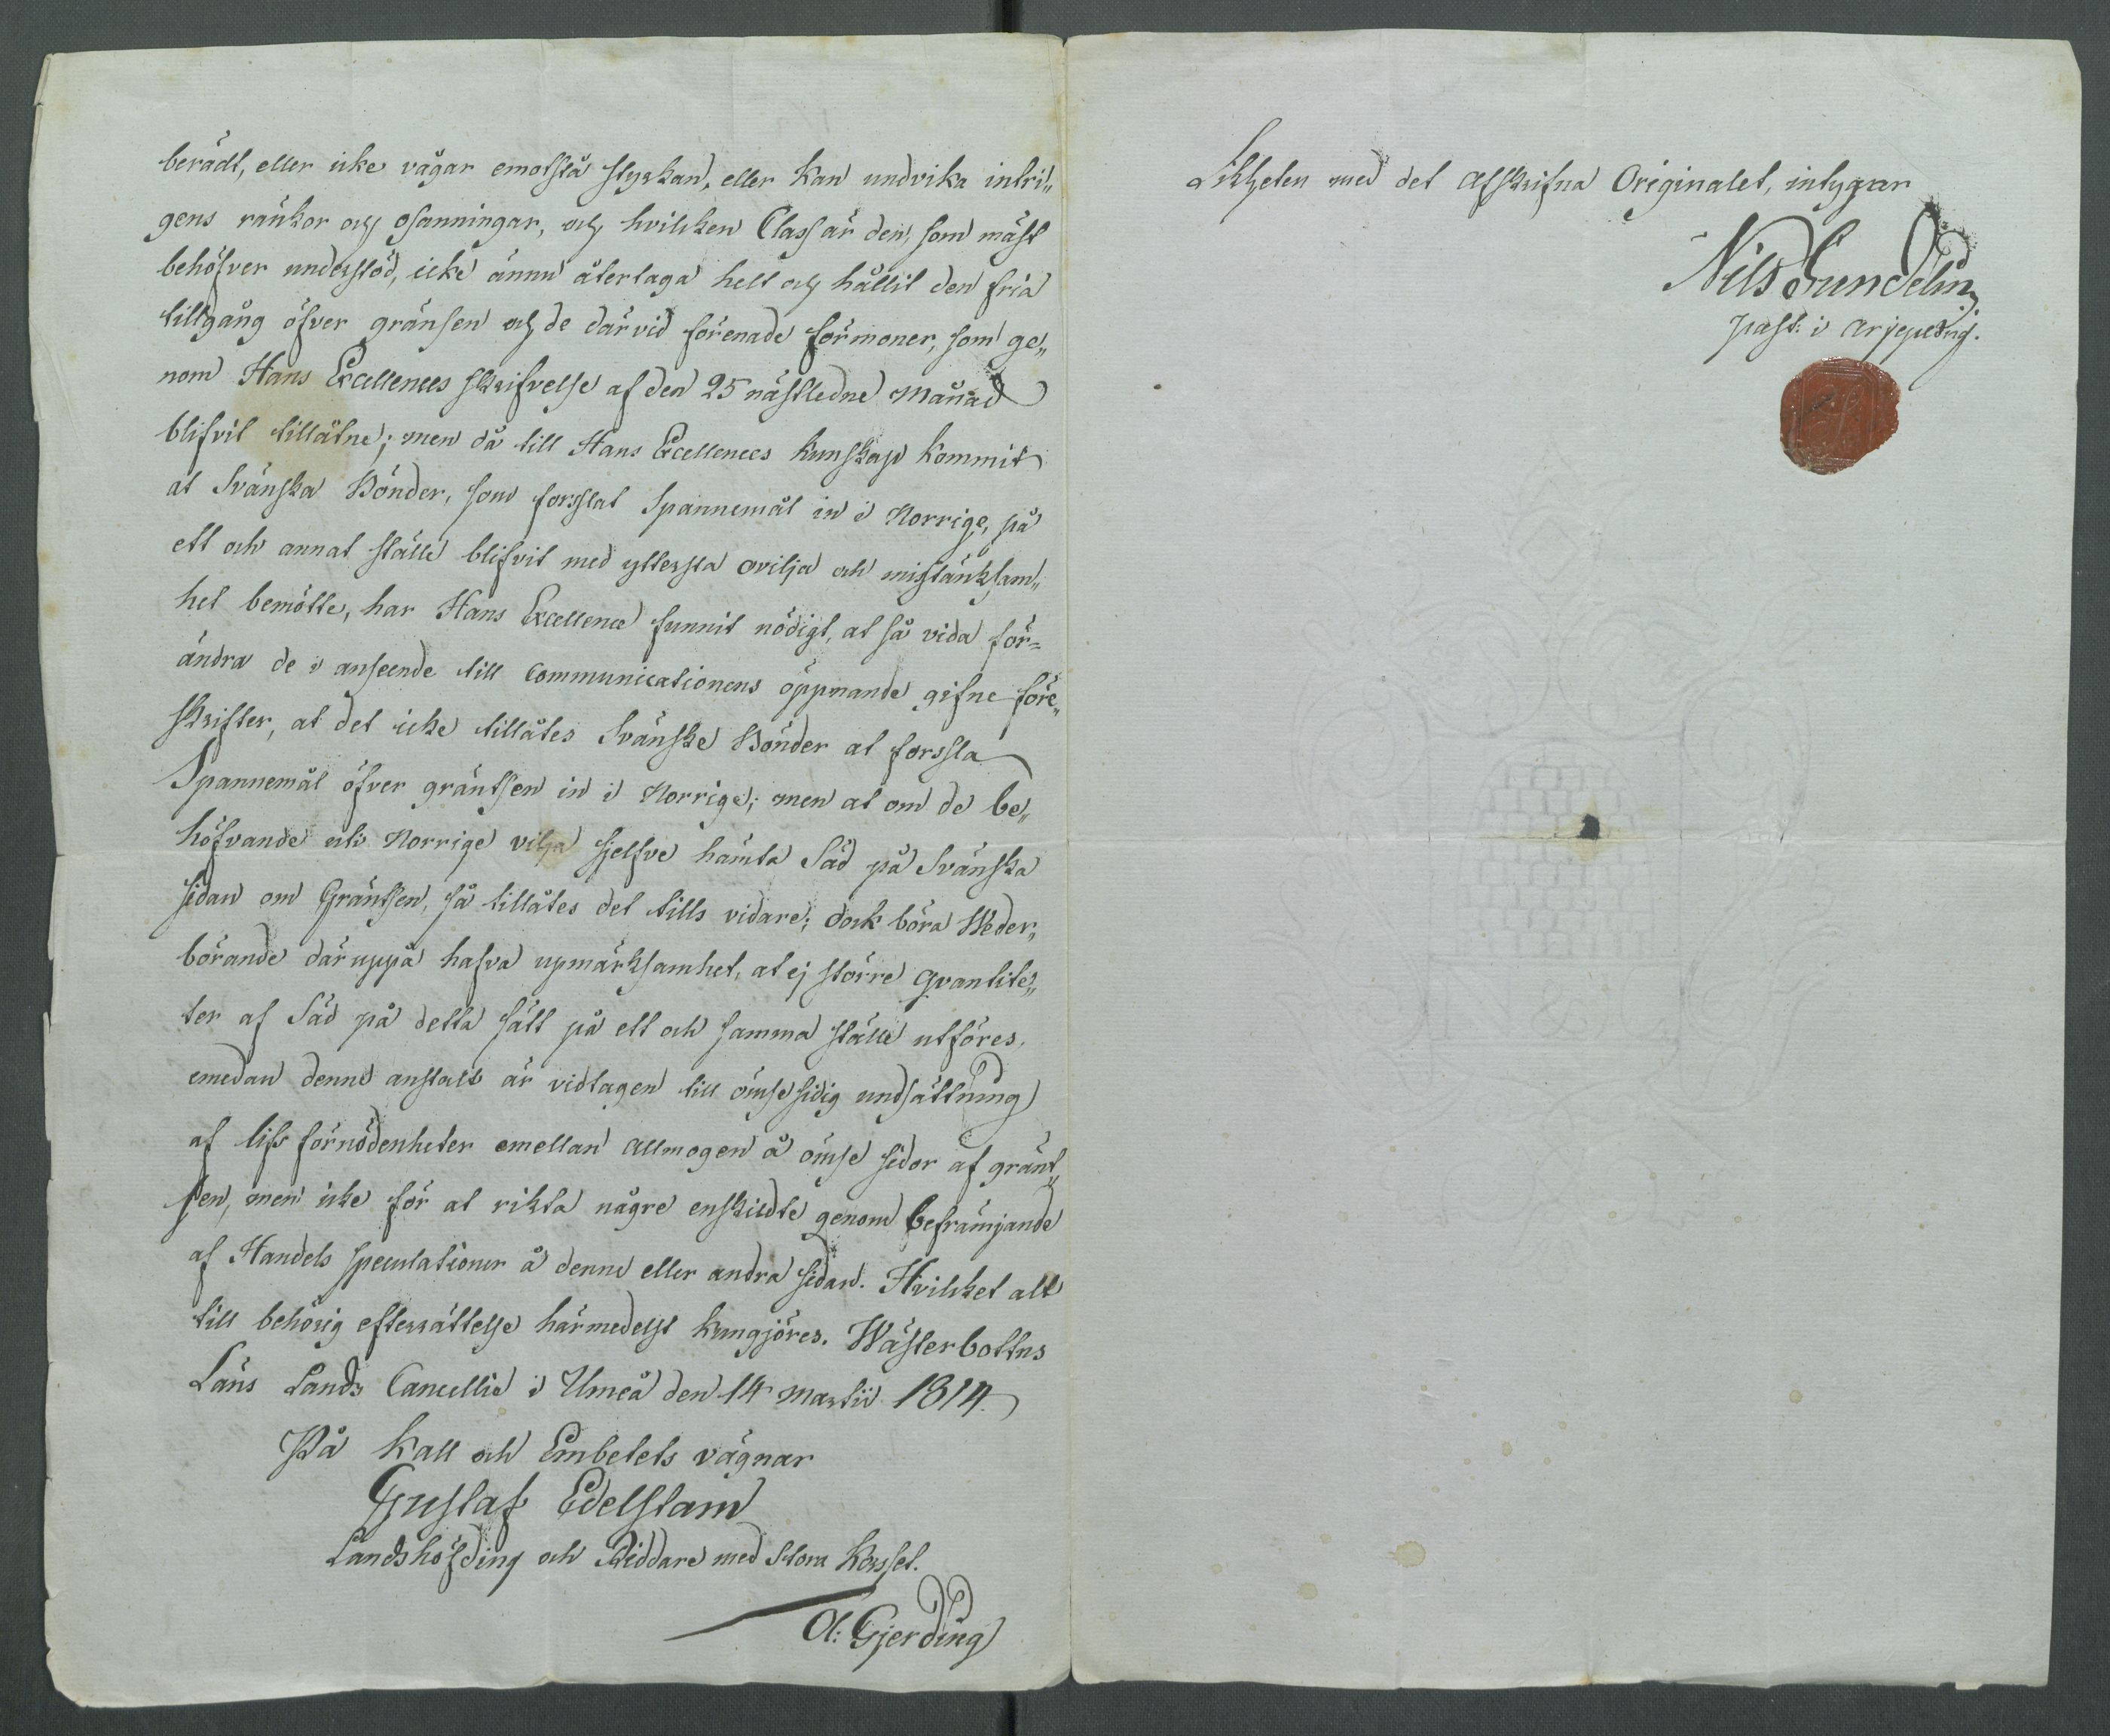 berädt, eller icke vågar emotstå styrkan, eller kan undvika intri„
gens ränkor och osanningar, och hvilcken Class är den, som mäst
behöfver understöd, icke ännu återtaga helt och hållit den fria
tillgång öfver gränsen och de därvid förenade förmoner, som ge„
nom Hans Excellences skrifvelse af den 25 nästledne Månad
blifvit tillåtne; men då till Hans Excellences kunskap kommit
at Svänska Bönder, som forslat Spannemål in i Norrige, på
ett och annat ställe blifvit med yttersta ovilja och misstänksam„
het bemötte, har Hans Excellence funnit nödigt, at så vida för=
ändra de i anseende till Communicationens öppnande gifne före„
skrifter, at det icke tillåtes Svänske Bönder at forssla
Spannemål öfver gräntsen in i Norrige; men at om de be„
höfvande uti Norrige vilja sjelfve hämta Säd på Svänska
sidan om Gräntsen, så tillåtes det tills vidare; dock böra Weder„
börande däruppå hafva upmärksamhet, at ej större qvantite„
ter af Säd på detta sätt på ett och samma ställe utföres,
emedan denne anstalt är vidtagen till ömsesidig undsättning
af lifs förnödenheter emellan allmogen å ömse sidor af gränt„
sen, men icke för at rikta någre enskildte genom befrämjande
af Handels speculationer å denne eller andra sidan. Hvilcket alt
till behörig efterrättelse härmedelst kungjöres. Wästerbottns
Läns Lands Cancellie i Umeå den 14 Martii 1814.
På Kall och Embetets vägnar
Gustaf Edelstam
Landshöfding och Riddare med Stora Korset.
O: Gjerding
Likheten med det afskrifna Originalet, intygar
Nils Sundelin
past: i Arjeploug.